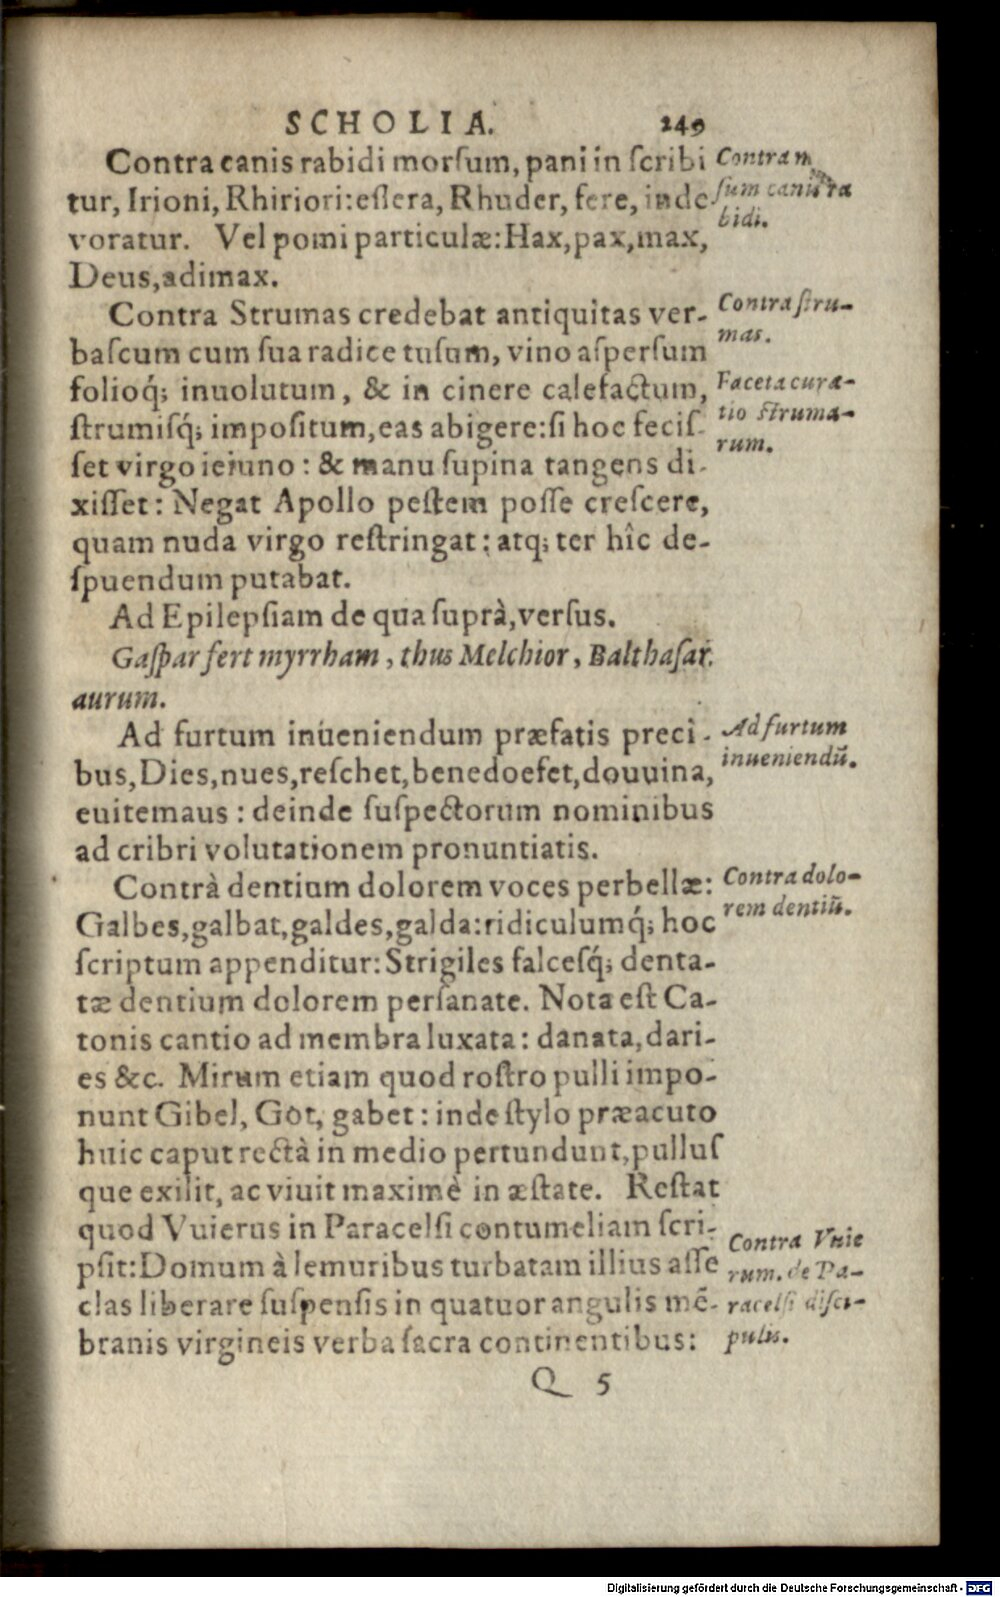 SCHOLIA. 249
Contra canis rabidi morſum, pani in ſcribi
tur, Irioni, Rhiriori: eſſera, Rhuder, fere, inde
voratur. Vel pomi particulæ: Hax, pax, max,
Deus, adimax.
Contra Strumas credebat antiquitas ver-
baſcum cum ſua radice tuſum, vino aſperſum
folioq́; inuolutum, & in cinere calefactum,
ſtrumiſq́; impoſitum, eas abigere: ſi hoc feciſ-
ſet virgo ieiuno: & manu ſupina tangens di-
xiſſet: Negat Apollo peſtem poſſe creſcere,
quam nuda virgo reſtringat: atq; ter hîc de-
ſpuendum putabat.
Ad Epilepſiam de qua ſuprà, verſus.
Gaſpar fert myrrham, thus Melchior, Balthaſar
aurum.
Ad furtum inueniendum præfatis preci-
bus, Dies, nues, reſchet, benedoefet, douuina,
euitemaus: deinde ſuſpectorum nominibus
ad cribri volutationem pronuntiatis.
Contrà dentium dolorem voces perbellæ:
Galbes, galbat, galdes, galda: ridiculumq́; hoc
ſcriptum appenditur: Strigiles falceſq́; denta-
tæ dentium dolorem perſanate. Nota eſt Ca-
tonis cantio ad membra luxata: danata, dari-
es &c. Mirum etiam quod roſtro pulli impo-
nunt Gibel, Got, gabet: inde ſtylo præacuto
huic caput rectà in medio pertundunt, pulluſ
que exilit, ac viuit maximè in æſtate. Reſtat
quod Vuierus in Paracelſi contumeliam ſcri-
pſit: Domum à lemuribus turbatam illius aſſe
clas liberare ſuſpenſis in quatuor angulis mē-
branis virgineis verba ſacra continentibus:
Q 5
Contra
ſum canis ra
bidi.
Contra ſtru-
mas.
Faceta cura-
tio ſtruma-
rum.
Ad furtum
inueniendū.
Contra dolo-
rem dentiū.
Contra Vuie
rum. de Pa-
racelſi diſci-
pulis.
Digitalisierung gefördert durch die Deutsche Forschungsgemeinschaft - DFG